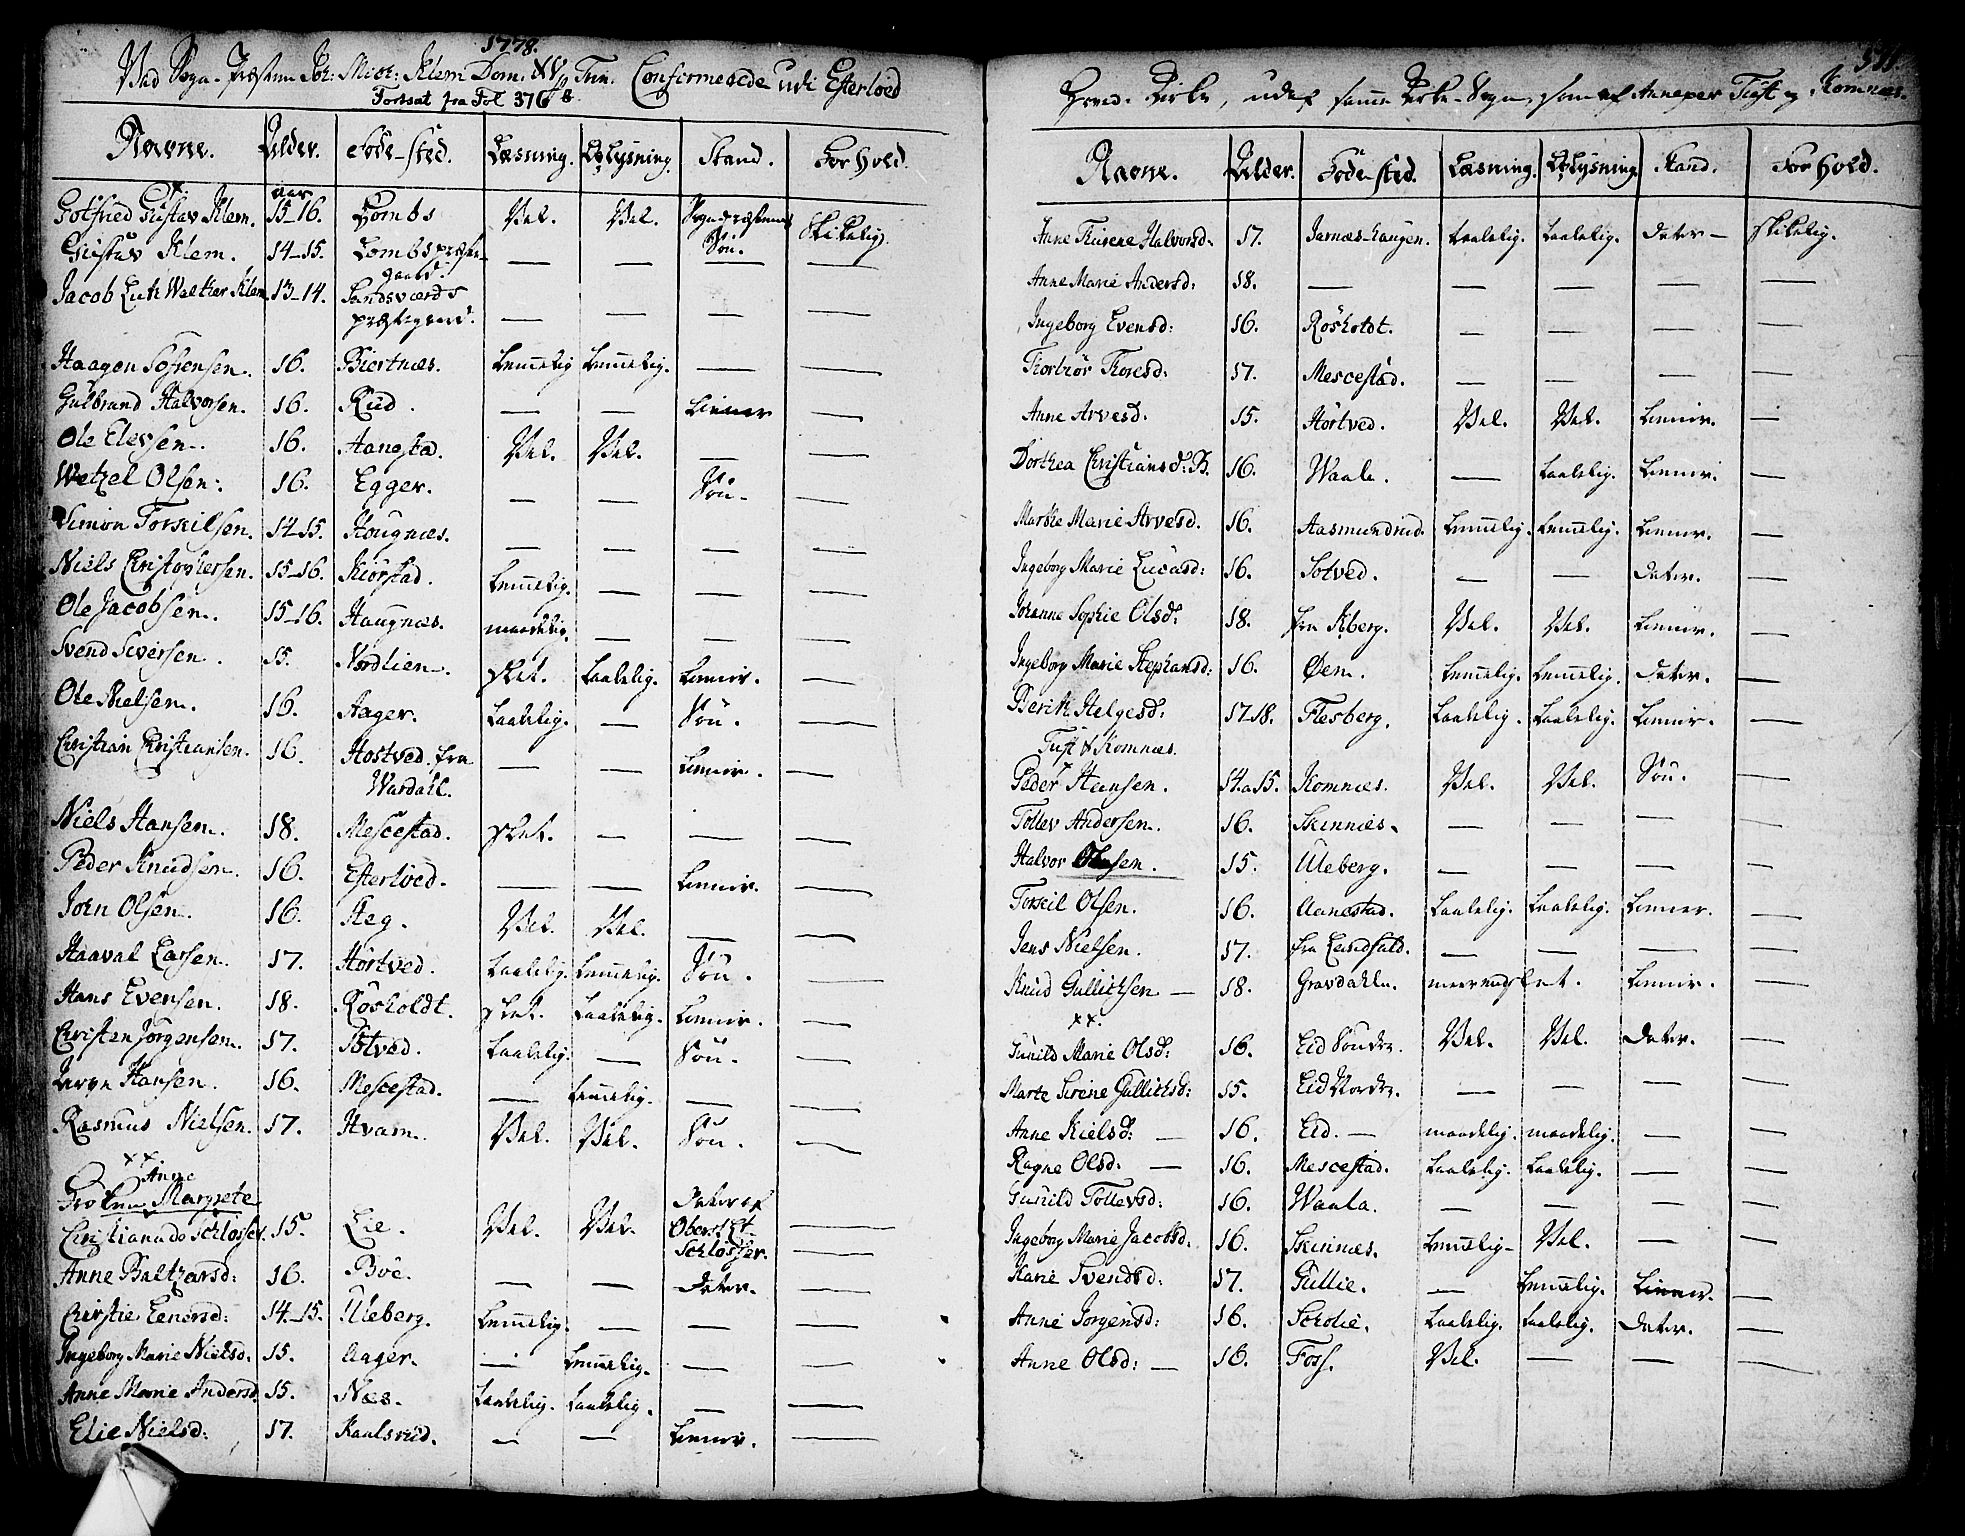 1778.
Ved Sogne-Præsten Joh: Mich: Klem Dom. XV p. Trin. Confirmerede udi Efterløed
Fortsat fra Fol 376 B
Navne. Alder. Föde-sted. Læsning. Oplysning. Stand. Forhold.
aar
Gotfried Gustav Klem. 15-16. Lombs Vel. Vel. Sognepræstens Søn. Skikelig.
Gustav Klem. 14-15. Lombs præste-gaard. — — — —
Jacob Luth Welther Klem 13-14. Sandsværds præstegaard. — — — —
Haagen Sörensen. 16. Biertnæs. Temmelig Temmelig. — —
Gulbrand Halvorsen. 16. Rud. — — Tiener —
Ole Elevsen. 16. Aangstad. Vel. Vel. — —
Wetzel Olsen. 16. Egger. — — Søn. —
Simon Torkilsen. 14-15. Hougnæs. — — — —
Niels Christophersen. 15-16. Kiörstad. Temmelig. — — —
Ole Jacobsen. 15-16. Haugnæs. maadelig. — — —
Svend Siversen. 15. Nordlien. slet. Taalelig. Tienier. —
Ole Nielsen. 16. Aager. Taalelig. — Søn. —
Christian Christiansen. 16. Hostved. fra Wardahl. — — Tienir. —
Niels Hansen. 18. Mescestad. slet. — — —
Peder Knudsen. 16. Efterløed. — — Tienir. —
John Olsen. 16. Steg. Vel. Vel. — —
Haaval Larsen. 17. Hörtved. Taalelig. Temmelig. Søn. —
Hans Evensen. 18. Rösholdt. slet. Taalelig. Tienir. —
Christen Jörgensen. 17. Totved. Taalelig. — Søn. —
Hansen. 16. Mescestad. — Temmelig. — —
Rasmus Nielsen. 17. Hvam. Vel. Vel. Søn. —
xx.
Anne
Fröken Margrete
Christiana de Schlösser. 15. Lie. Vel. Vel. Dater af Oberst Lt Schlösser. —
Anne Baltharsd: 16. Böe. — — Dater. —
Christie Enersd: 14-15. Uleberg. Temmelig. — — —
Ingeborg Marie Nielsd: 15. Aager. — Temmelig. — —
Anne Marie Andersd. 15. Næs. Taalelig. Taalelig. — —
Elie Nielsd: 17. Kaalsrud. — — Tienir. —
Hoved-Kirke, udaf samme Kirke-Sogn, som af Annexer Tuft og Komnæs.
Navne. Alder. Föde-sted. Læsning. Oplysning Stand. Forhold.
Anne Thurene Halvorsd: 17. Jarnæs-haugen. taalelig. taalelig. Dater — skikelig.
Anne Marie Andersd: 18. — — — — —
Ingeborg Evensd: 16. Rösholdt. — — — —
Thorbiör Thoresd: 17. Mescestad. — — — —
Anne Arvesd. 15. Hörtved. Vel. Vel. Tienir. —
Dorthea Christiansd: B. 16. Waale. — taalelig. Tienir. —
Marthe Marie Arvesd. 16. Aasmundrud. Temmelig. Temmelig. Tienir. —
Ingeborg Marie Lucasd: 16. Totved. — — Dater. —
Johanne Sophie Olsd: 18. fra Kberg. Vel. Vel. Tienir. —
Ingeborg Marie Stephansd: 16. Øen. Temmelig. Temmelig. Dater. —
Berith Helgesd: 17.18. Flesberg. Taalelig. Taalelig. Tienir. —
Tuft & Komnæs.
Peder Hansen. 14.a15. Komnæs. Vel. Vel. Søn. —
Tollev Andersen. 16. Skinnæs. — — — —
Halvor Olsen. 15. Uleberg. — — — —
Torkil Olsen. 16. Aanestad. Taalelig. Taalelig. Tiener. —
Jens Nielsen. 17. fra — — — —
Knud Gullichsen — 18. Gravdahl. meer end slet. Tienir. —
xx.
Gunild Marie Olsd: 16. Eid Søndre. Vel. Vel. Dater. —
Marte Sirene Gullichsd: 15. Eid Nordre. — — —
Anne Kielsd: — 16. Eid. — maadelig. maadelig. — —
Ragne Olsd. — 16. Mescestad. Taalelig. Taalelig. — —
Gunild Tollevsd: 16. Waala. — — — —
Ingeborg Marie Jacobsd: 16. Skinnæs. Temmelig — Vel. — —
Karie Svendsd: 17. Gullie. — Temmelig. Tiener. —
Anne Jörgensd: 16. Schölie. Taalelig. taalelig. Dater. —
Anne Olsd: — 16. Foss. Vel. — — —